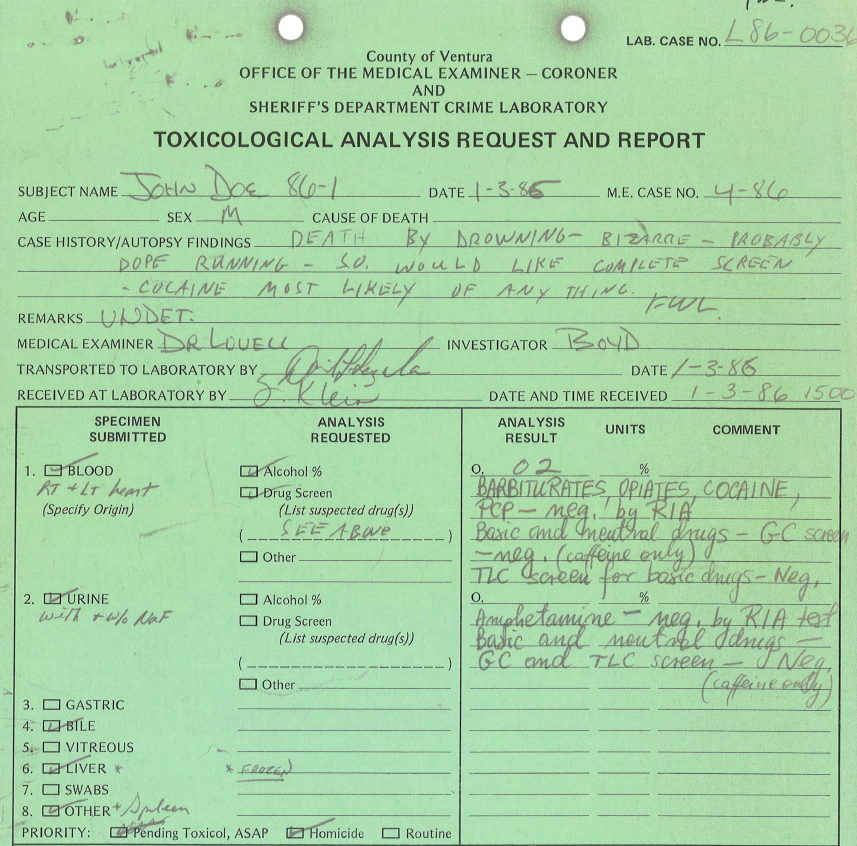 LAB. CASE NO. L86-0036
County of Ventura
OFFICE OF THE MEDICAL EXAMINER — CORONER
AND
SHERIFF'S DEPARTMENT CRIME LABORATORY
TOXICOLOGICAL ANALYSIS REQUEST AND REPORT
SUBJECT NAME JOHN DOE 86-1 DATE 1-3-86 M.E. CASE NO. 4-86
AGE SEX M CAUSE OF DEATH
CASE HISTORY/AUTOPSY FINDINGS DEATH BY DROWNING - BIZARRE - PROBABLY
DOPE RUNNING - S.O. WOULD LIKE COMPLETE SCREEN
- COCAINE MOST LIKELY OF ANY THING.
FWL.
REMARKS UNDET.
MEDICAL EXAMINER DR LOVELL INVESTIGATOR BOYD
TRANSPORTED TO LABORATORY BY DATE 1-3-86
RECEIVED AT LABORATORY BY J. Klein DATE AND TIME RECEIVED 1-3-86 1500
SPECIMEN SUBMITTED ANALYSIS REQUESTED ANALYSIS RESULT UNITS COMMENT
1. BLOOD Alcohol % 0. 02 %
RT + LT heart Drug Screen BARBITURATES, OPIATES, COCAINE,
(Specify Origin) (List suspected drug(s)) PCP - neg. by RIA
(SEE ABOVE) Basic and neutral drugs - GC screen
Other - neg. (caffeine only)
TLC screen for basic drugs - Neg.
2. URINE Alcohol % 0. %
with + w/o NaF Drug Screen Amphetamine - neg. by RIA test
(List suspected drug(s)) Basic and neutral drugs -
( ) GC and TLC screen - Neg.
Other (caffeine only)
3. GASTRIC
4. BILE
5. VITREOUS
6. LIVER * * FROZEN
7. SWABS
8. OTHER + Spleen
PRIORITY: Pending Toxicol, ASAP Homicide Routine